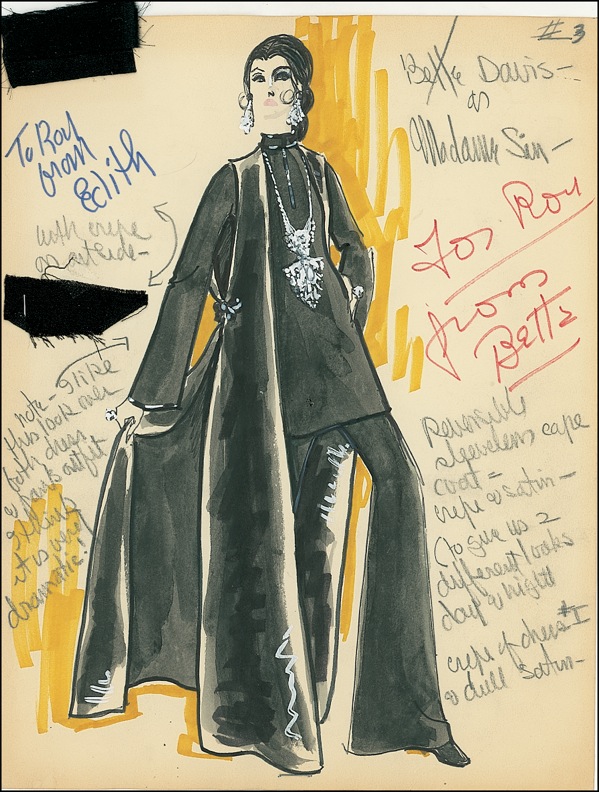 #3
Bette Davis -
as
Madame Sin -
To Ron
from
Edith
For Ron
from
Bette
with crepe
on outside -
note - I like
this look over
both dress
& pants outfit
it is very
dramatic!
Reversible
sleeveless cape
coat =
crepe & satin -
To give us 2
different looks
day & night
crepe of dress #1
& dull satin -